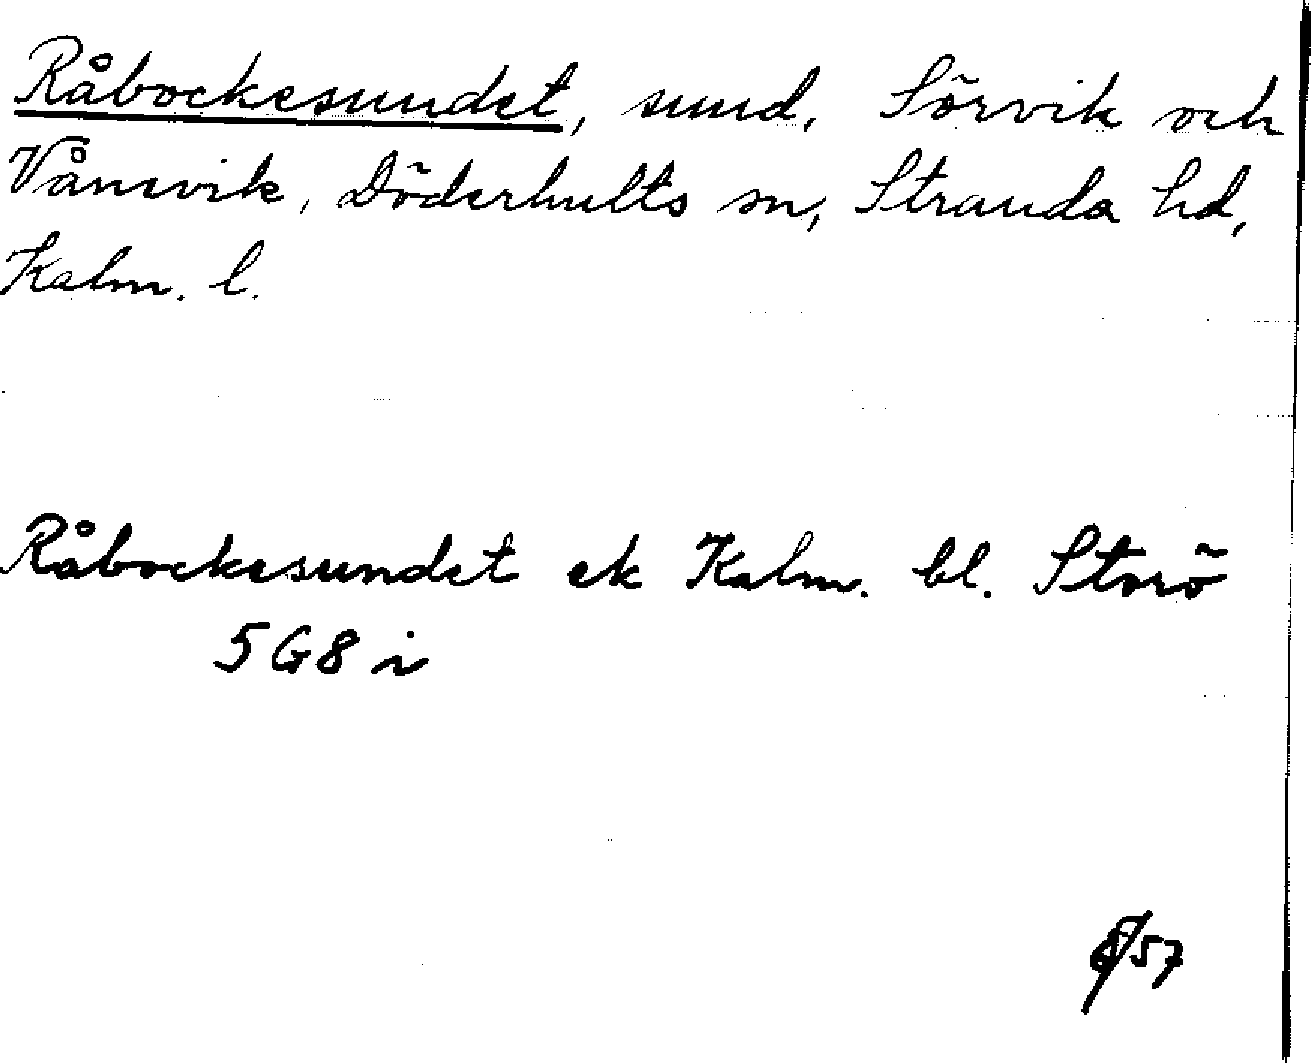 Råbockesundet, sund, Sörvik och
Vånevik, Döderhults sn, Stranda hd,
Kalm. l.
Råbockesundet ek Kalm. bl. Storö
5 G 8 i
57